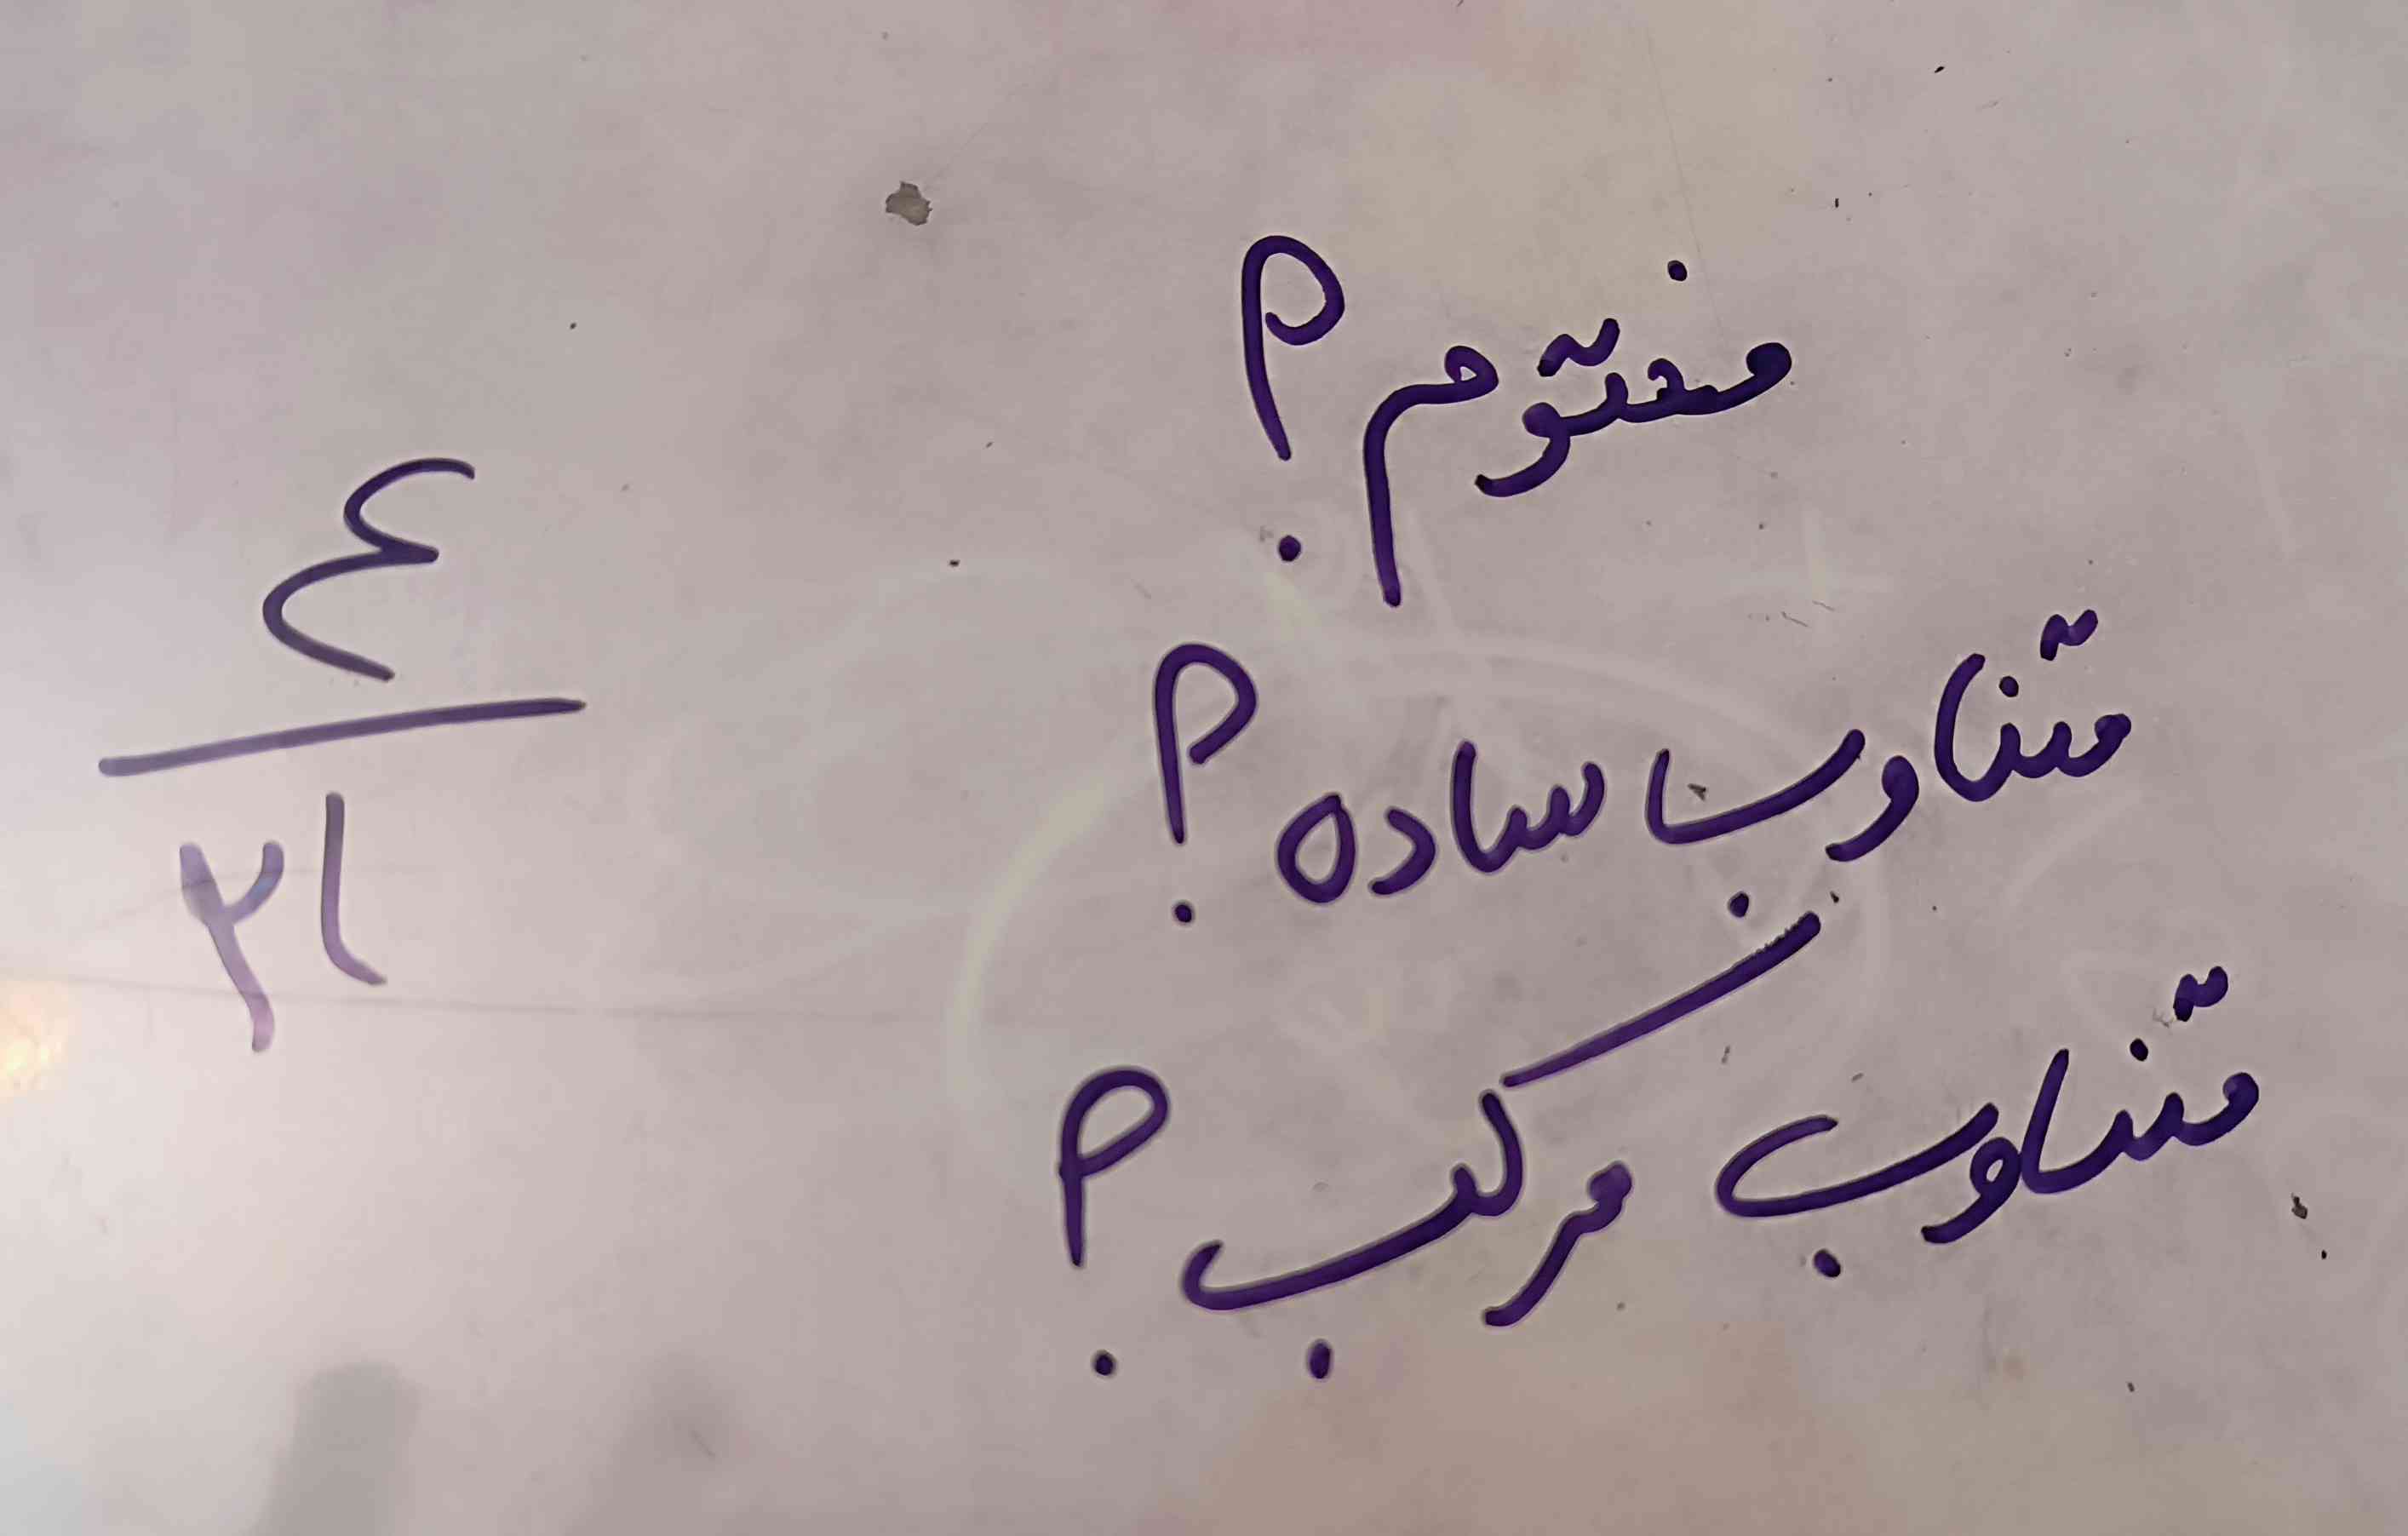 مختوم؟
متناوب ساده؟
متناوب مرکب؟
٤
۲۱